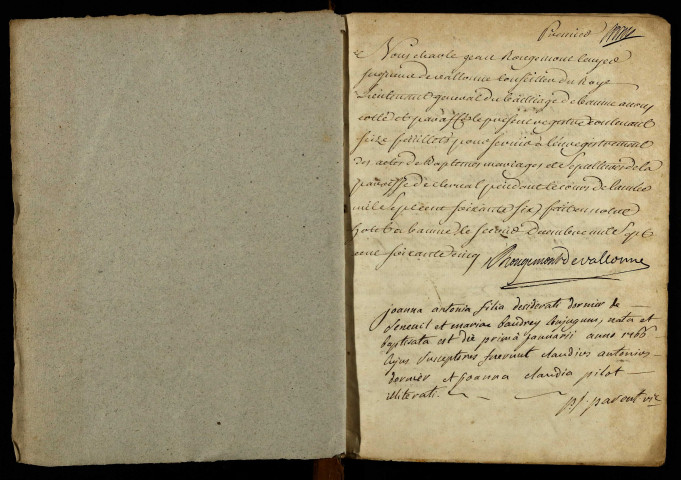 Premier
Nous charle jean Rougemont Ecuyer
seigneur de vallonne Conseiller du Roy
Lieutenant general du bailliage de baume avons
cotté et paraffé le present registre contenant
seize feuillets pour servir a l'enregistrement
des actes de Baptemes mariages et Sepultures de la
paroisse de clerval pendant le cours de l'année
mil Sept cent soixante six, fait en notre
hotel a baume le second Decembre mil Sept
cent soixante cinq Rougemont de vallonne
joanna antonia filia desiderati dornier de
Seneuil et mariae baudrey Conjugum, nata et
baptisata est die primâ januarii anno 1766
Cujus Susceptores fuerunt claudius antonius
dornier et joanna claudia pilot
illiterati.
pf. parent vic